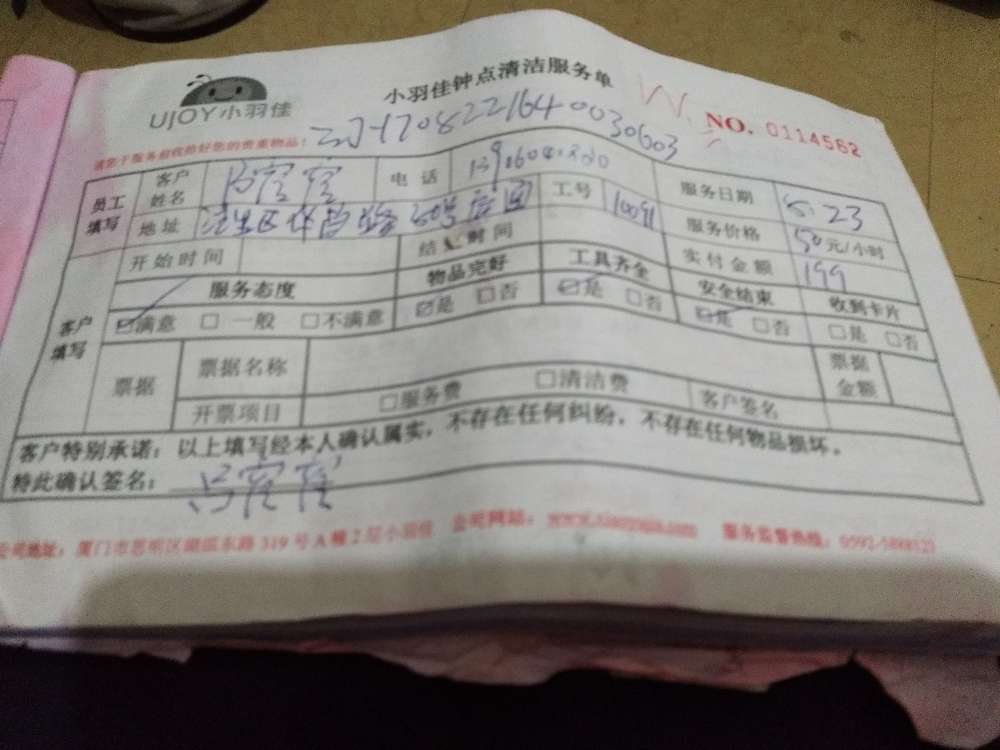 UJOY小羽佳
小羽佳钟点清洁服务单
NO. 0114562
请您于服务前收拾好您的贵重物品：
170822164 0030603
员工填写
客户姓名
电话
服务日期 8.23
地址
工号 10091
服务价格 50元/小时
开始时间
结束时间
实付金额 199
客户填写
服务态度
物品完好
工具齐全
安全结束
收到卡片
☑满意 □一般 □不满意
☑是 □否
☑是 □否
☑是 □否
□是 □否
票据
票据名称
票据金额
开票项目
□服务费 □清洁费
客户签名
客户特别承诺：以上填写经本人确认属实，不存在任何纠纷，不存在任何物品损坏。
特此确认签名：
公司地址：厦门市思明区湖滨东路319号A幢2层小羽佳 公司网站： 服务监督热线：